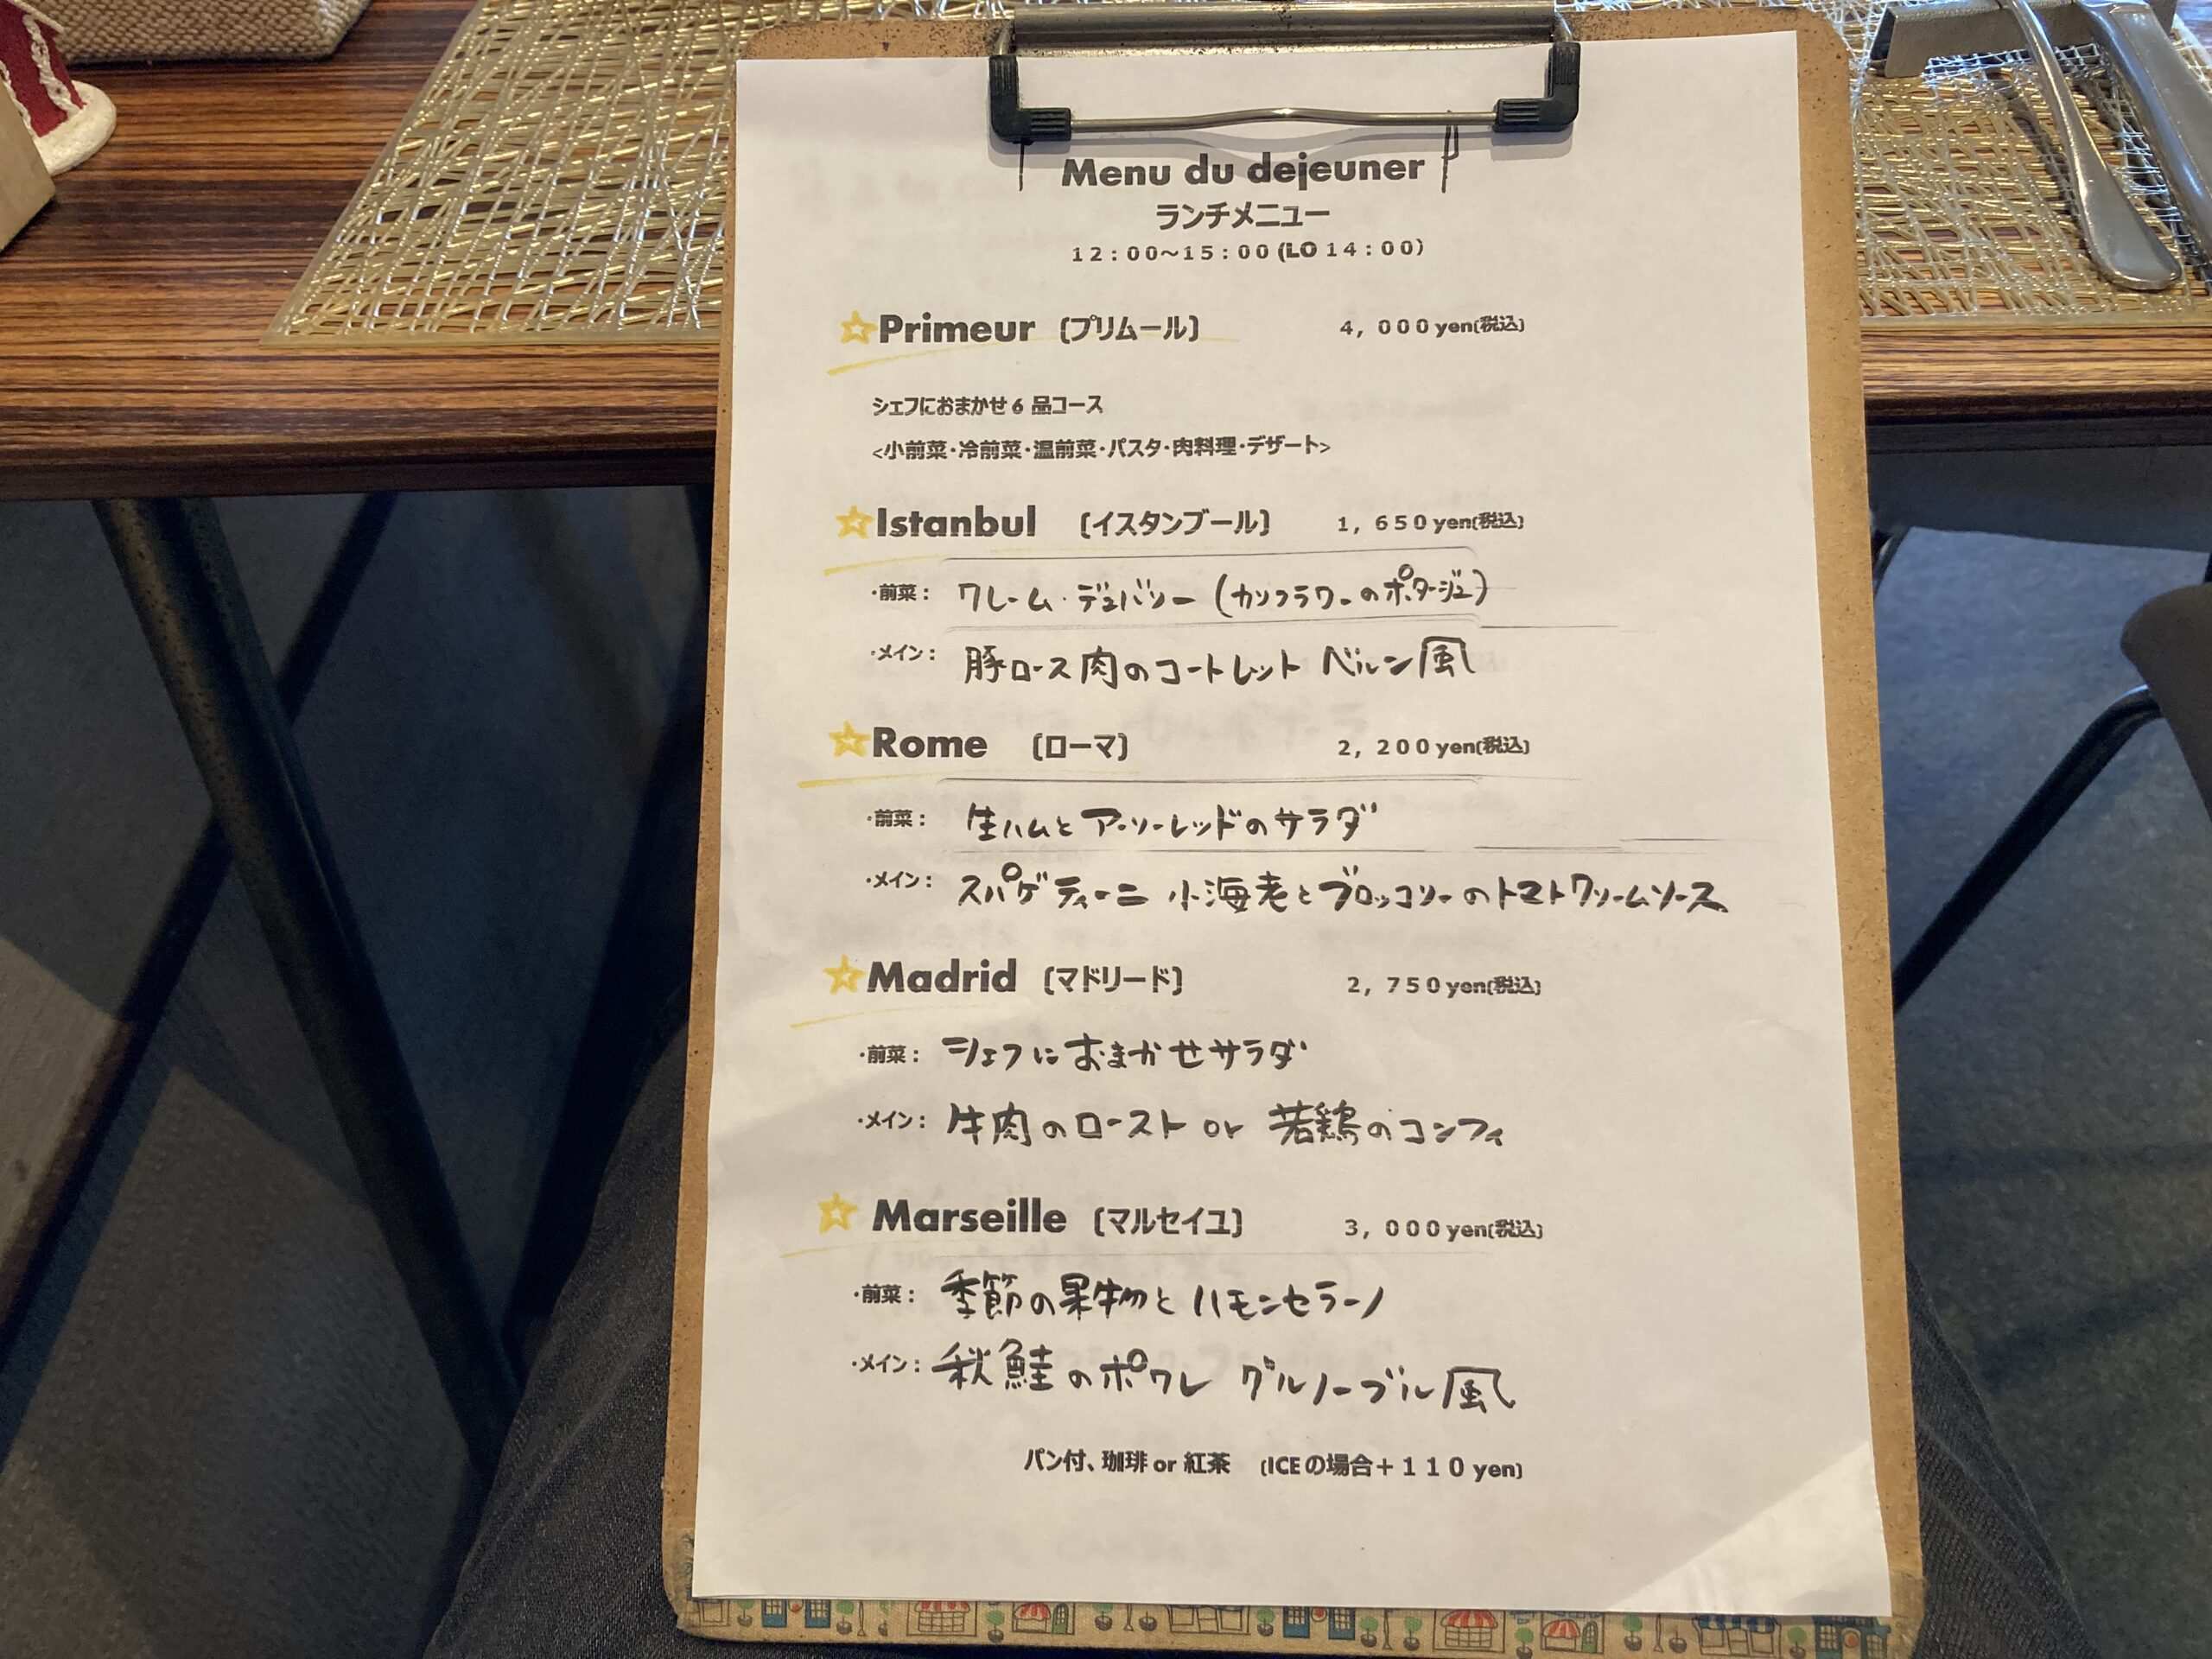 Menu du dejeuner
ランチメニュー
12:00～15:00(LO 14:00)
☆Primeur [プリムール] 4,000yen[税込]
シェフにおまかせ6品コース
<小前菜・冷前菜・温前菜・パスタ・肉料理・デザート>
☆Istanbul [イスタンブール] 1,650yen[税込]
・前菜: クレーム・デュバリー(カリフラワーのポタージュ)
・メイン: 豚ロース肉のコートレット ベルン風
☆Rome [ローマ] 2,200yen[税込]
・前菜: 生ハムとアーリーレッドのサラダ
・メイン: スパゲティーニ 小海老とブロッコリーのトマトクリームソース
☆Madrid [マドリード] 2,750yen[税込]
・前菜: シェフにおまかせサラダ
・メイン: 牛肉のロースト or 若鶏のコンフィ
☆Marseille [マルセイユ] 3,000yen[税込]
・前菜: 季節の果物とハモンセラーノ
・メイン: 秋鮭のポワレ グルノーブル風
パン付、珈琲 or 紅茶 [ICEの場合+110yen]